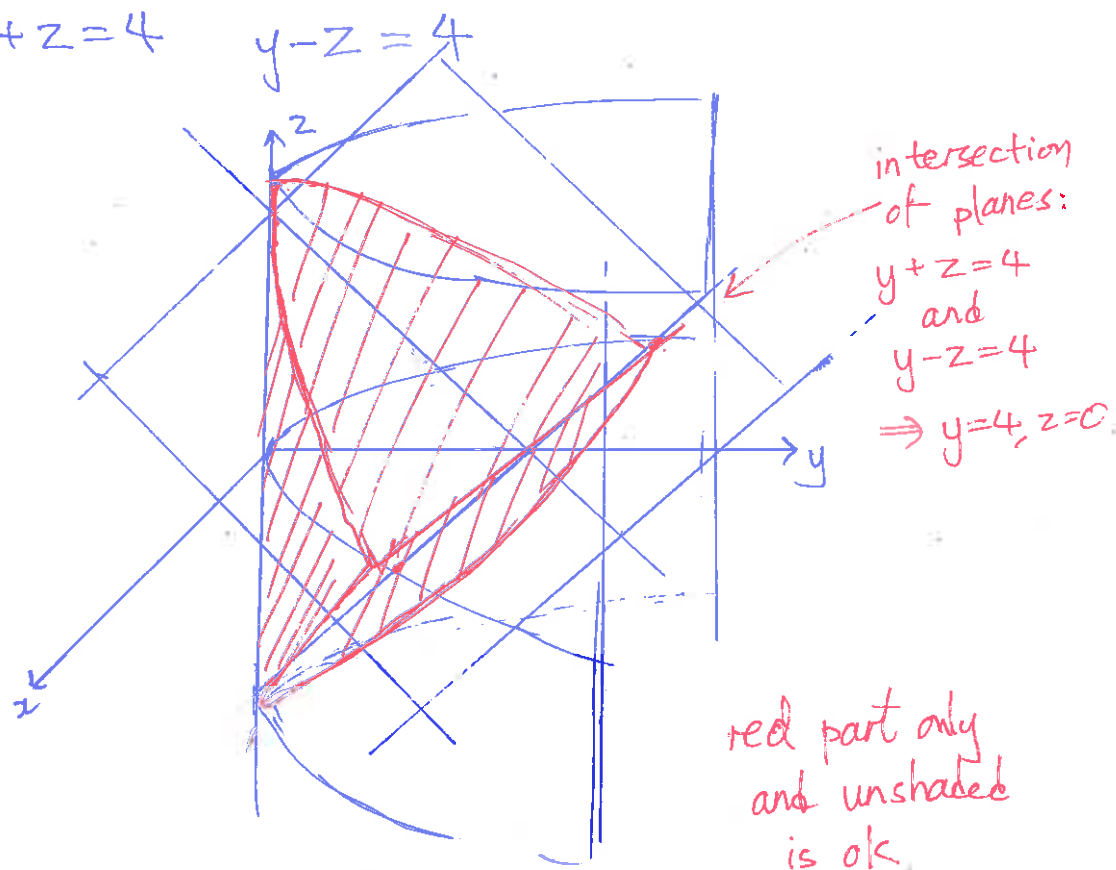 +z=4 y-z=4
z
intersection
of planes:
y+z=4
and
y-z=4
⇒ y=4, z=0
y
x
red part only
and unshaded
is ok